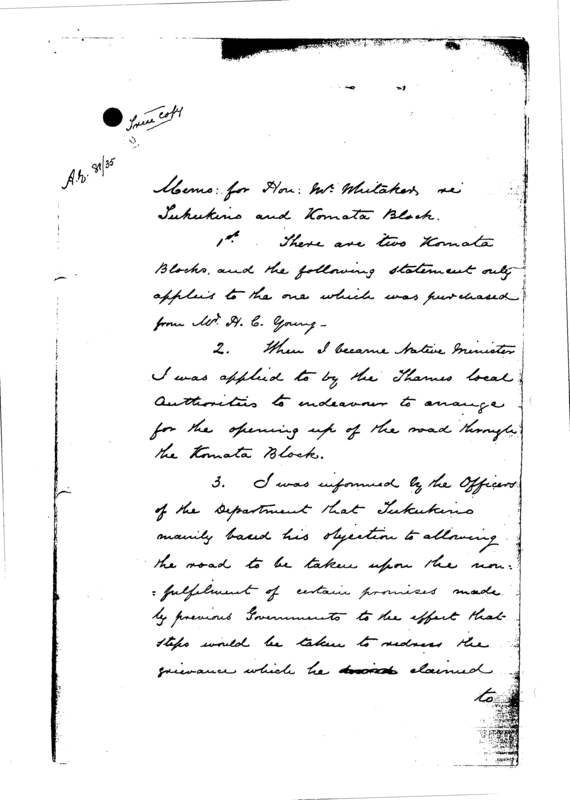 True copy
A.G. 81/35
Memo: for Hon: Mr. Whitaker re
Tukukino and Komata Block.
1st. There are two Komata
Blocks, and the following statement only
applies to the one which was purchased
from Mr. H. C. Young –
2. When I became Native Minister
I was applied to by the Thames local
Authorities to endeavour to arrange
for the opening up of the road through
the Komata Block.
3. I was informed by the Officers
of the Department that Tukukino
mainly based his objection to allowing
the road to be taken upon the non:
:fulfilment of certain promises made
by previous Governments to the effect that
steps would be taken to redress the
grievance which he claimed
to